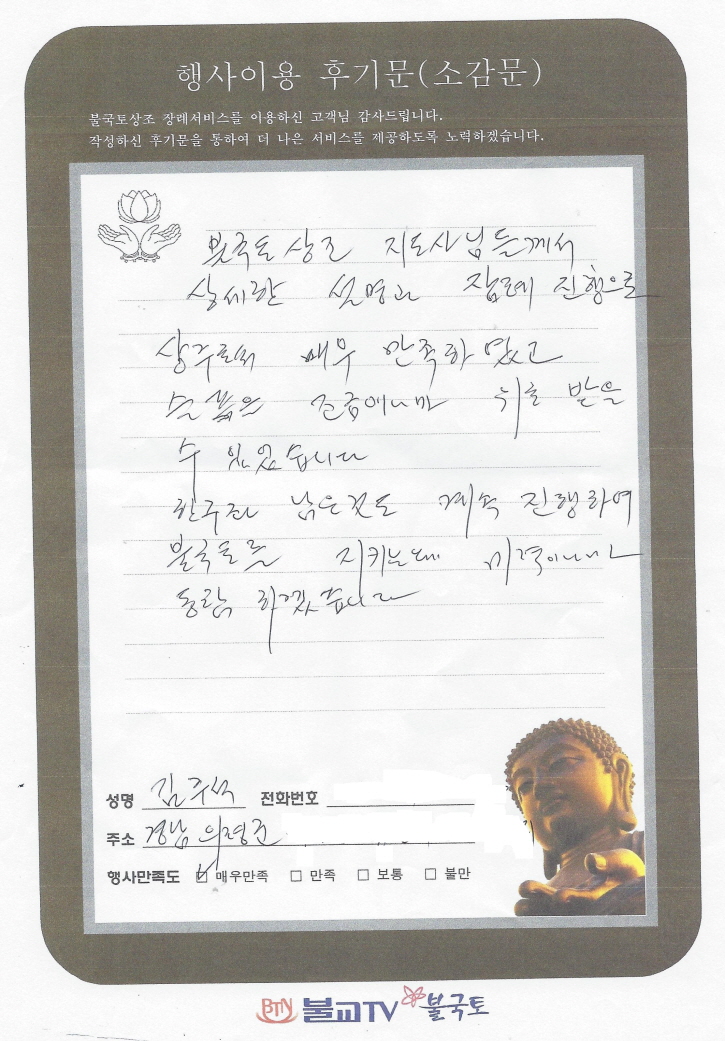 행사이용 후기문(소감문)
불국토상조 장례서비스를 이용하신 고객님 감사드립니다.
작성하신 후기문을 통하여 더 나은 서비스를 제공하도록 노력하겠습니다.
불국토 상조 지도사님들께서
상세한 설명과 장례 진행으로
상주로써 매우 만족하였고
슬픔은 조금이나마 위로 받을
수 있었습니다
한구좌 남은것도 계속 진행하여
불국토를 지키는데 미력이나마
동참 하겠습니다
성명 김주석 전화번호
주소 경남 의령군
행사만족도 매우만족 만족 보통 불만
BTN 불교TV 불국토